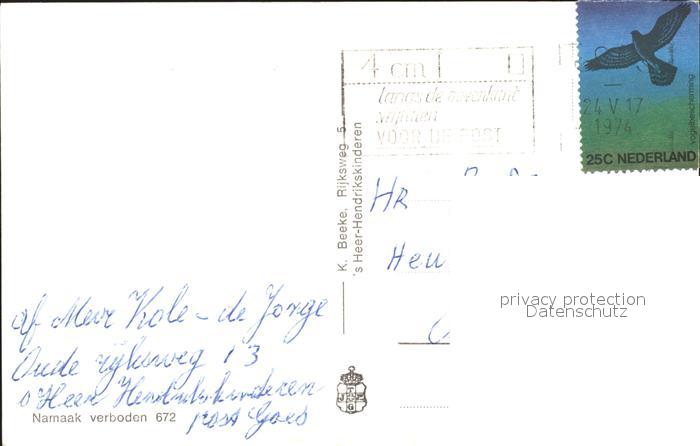 4 cm
langs de bovenkant
vrijhouden
VOOR UW POST
24 V 17
1974
Vogelbescherming
25C NEDERLAND
K. Beeke, Rijksweg 5,
's Heer-Hendrikskinderen
HR
Heu
privacy protection
Datenschutz
af Mevr Kole - de Jonge
Oude rijksweg 13
s Heer Hendrikskinderen
post Goes
Namaak verboden 672